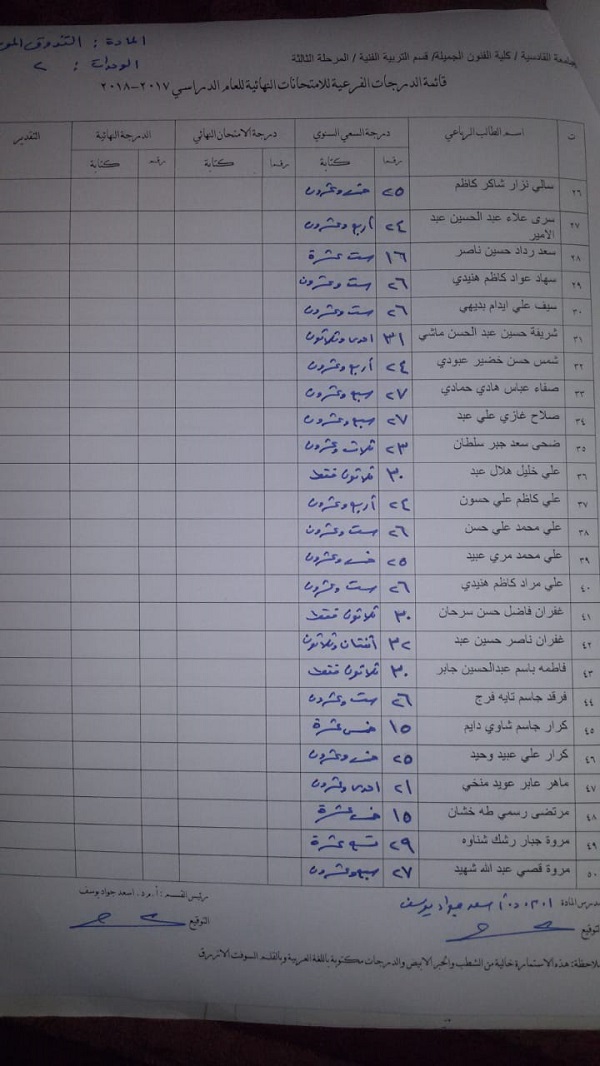 المادة : التذوق المو
الوحدات : ٢
جامعة القادسية / كلية الفنون الجميلة / قسم التربية الفنية / المرحلة الثالثة
قائمة الدرجات الفرعية للامتحانات النهائية للعام الدراسي ٢٠١٧-٢٠١٨
ت اسم الطالب الرباعي درجة السعي السنوي درجة الامتحان النهائي الدرجة النهائية التقدير
رقما كتابة رقما كتابة رقما كتابة
٢٦ سالي نزار شاكر كاظم ٢٥ خمس وعشرون
٢٧ سرى علاء عبد الحسين عبد الامير ٢٤ أربع وعشرون
٢٨ سعد رداد حسين ناصر ١٦ ست عشرة
٢٩ سهاد عواد كاظم هنيدي ٢٦ ست وعشرون
٣٠ سيف علي ايدام بديهي ٢٦ ست وعشرون
٣١ شريفة حسين عبد الحسن ماشي ٣١ احدى وثلاثون
٣٢ شمس حسن خضير عبودي ٢٤ أربع وعشرون
٣٣ صفاء عباس هادي حمادي ٢٧ سبع وعشرون
٣٤ صلاح غازي علي عبد ٢٧ سبع وعشرون
٣٥ ضحى سعد جبر سلطان ٢٣ ثلاث وعشرون
٣٦ علي خليل هلال عبد ٣٠ ثلاثون فقط
٣٧ علي كاظم علي حسون ٢٤ أربع وعشرون
٣٨ علي محمد علي حسن ٢٦ ست وعشرون
٣٩ علي محمد مري عبيد ٢٥ خمس وعشرون
٤٠ علي مراد كاظم هنيدي ٢٦ ست وعشرون
٤١ غفران فاضل حسن سرحان ٣٠ ثلاثون فقط
٤٢ غفران ناصر حسين عبد ٣٢ اثنتان وثلاثون
٤٣ فاطمه باسم عبدالحسين جابر ٣٠ ثلاثون فقط
٤٤ فرقد جاسم تايه فرج ٢٦ ست وعشرون
٤٥ كرار جاسم شاوي دايم ١٥ خمس عشرة
٤٦ كرار علي عبيد وحيد ٢٥ خمس وعشرون
٤٧ ماهر عابر عويد منخي ٢١ احدى وعشرون
٤٨ مرتضى رسمي طه خشان ١٥ خمس عشرة
٤٩ مروة جبار رشك شناوه ٢٩ تسع عشرة
٥٠ مروة قصي عبد الله شهيد ٢٧ سبع وعشرون
مدرس المادة اسعد جواد يوسف
التوقيع
رئيس القسم : أ.م.د. اسعد جواد يوسف
التوقيع
ملاحظة: هذه الاستمارة خالية من الشطب والحبر الابيض والدرجات مكتوبة باللغة العربية وبالقلم السوفت الازرق